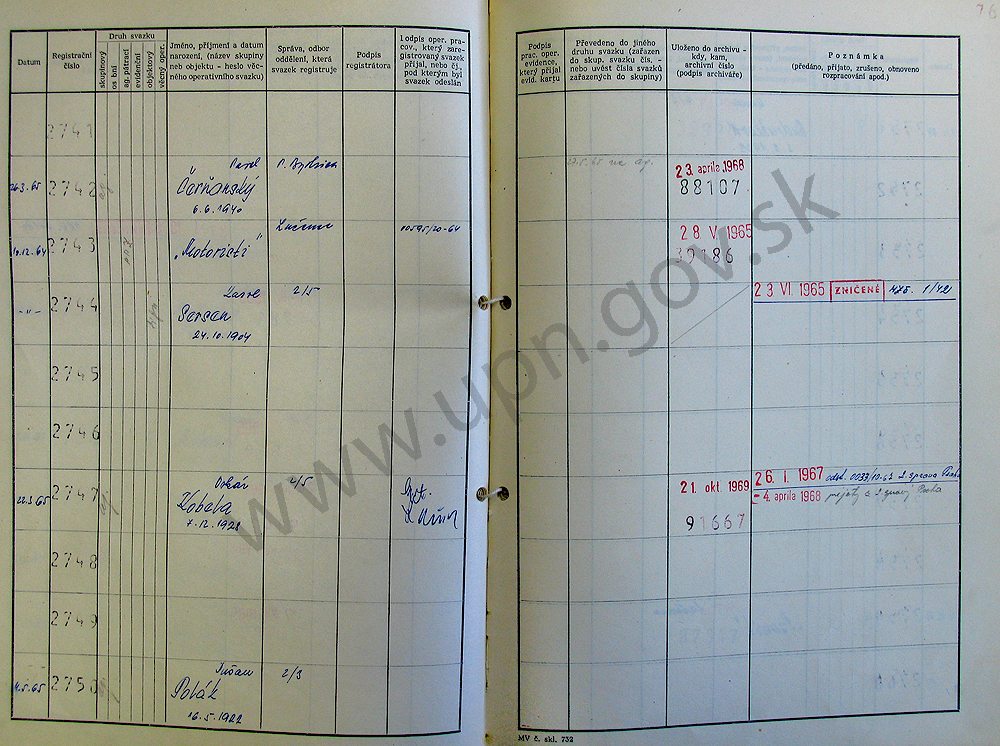 76
Datum
Registrační číslo
Druh svazku
skupinový
osobní
ag. pátrací
evidenční
objektový
věcný oper.
Jméno, příjmení a datum
narození, (název skupiny
neb. objektu - heslo věc-
ného operativního svazku)
Správa, odbor
oddělení, která
svazek registruje
Podpis
registrátora
Podpis oper. pra-
cov., který zare-
gistrovaný svazek
přijal, nebo čj.
pod kterým byl
svazek odeslán
Podpis
prac. oper.
evidence,
který přijal
evid. kartu
Převedeno do jiného
druhu svazku (zařazen
do skup. svazku čís. -
nebo uvést čísla svazků
zařazených do skupiny)
Uloženo do archivu -
kdy, kam,
archivní číslo
(podpis archiváře)
Poznámka
(předáno, přijato, zrušeno, obnoveno
rozpracování apod.)
2741
26.3.65 2742 Pavel P. Bystrica
Čerňonský
6.6.1940
23. apríla 1968
88107
10.12.64 2743 Lučenec 00595/20-64
„Motoristi"
28 V. 1965
39186
-"- 2744 Karol 2/5
Sersen
24.10.1904
23 VI. 1965 ZNIČENÉ 1/421
2745
2746
22.3.65 2747 Oskár 2/5
Kobela
7.12.1928
21. okt. 1969
91667
26. I. 1967 odst. 0033/10-67 2. správa Praha
- 4. apríla 1968
2748
2749
11.5.65 2750 Dušan 2/3
Polák
16.5.1922
MV č. skl. 732
www.upn.gov.sk